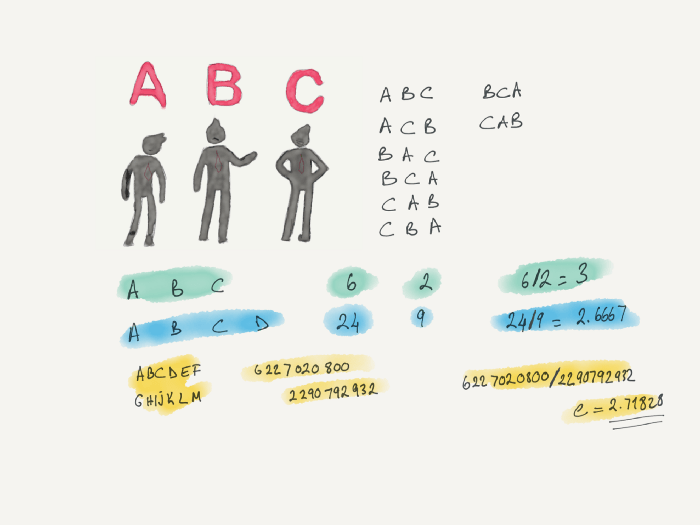 A B C
A B C BCA
A C B CAB
B A C
B C A
C A B
C B A
A B C 6 2 6/2 = 3
A B C D 24 9 24/9 = 2.6667
ABCDEF 6227020800
GHIJKLM 2290792932
6227020800/2290792932
e = 2.71828